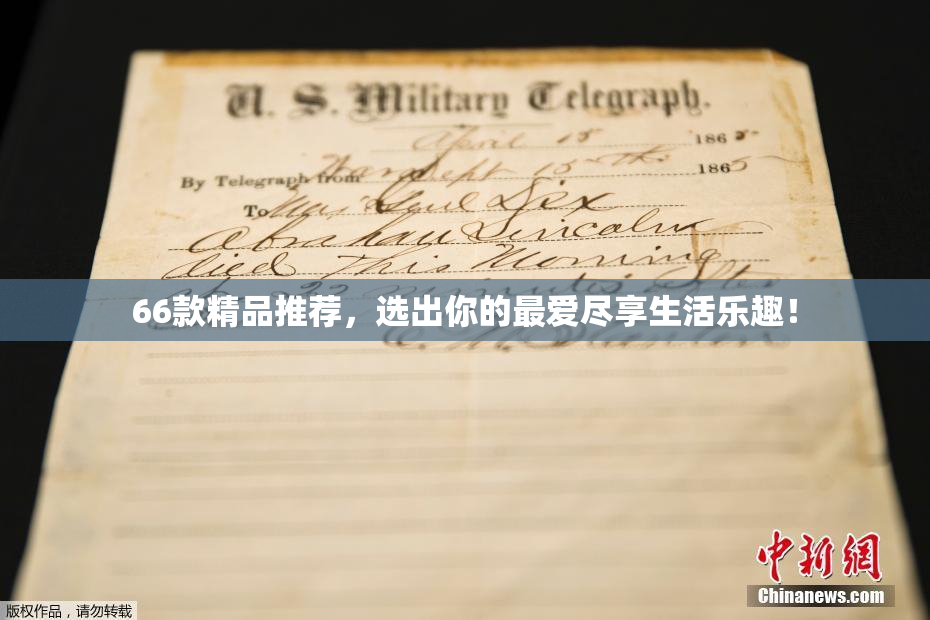 U. S. Military Telegraph.
April 15 1865
By Telegraph from War Dept 15th 1865
To Maj Genl Dix
Abraham Lincoln
died This Morning
22 minutes after
66款精品推荐，选出你的最爱尽享生活乐趣！
E. M. Stanton
中新网
Chinanews.com
版权作品，请勿转载